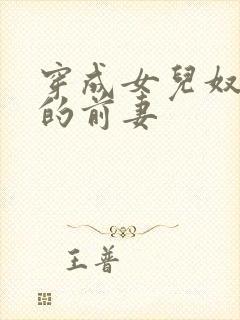 穿成女兒奴
的前妻
王普